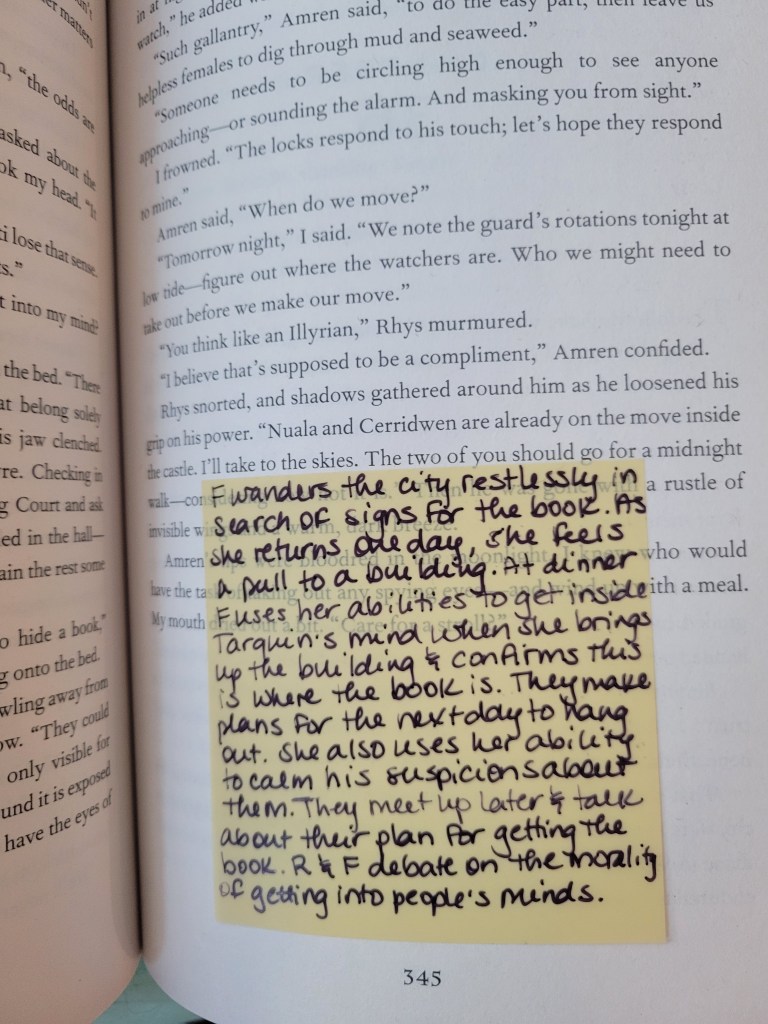 er matters
n, "the odds are
asked about the
ok my head. "It
ti lose that sense.
ts."
t into my mind?
the bed. "There
at belong solely
is jaw clenched.
re. Checking in
g Court and ask
ed in the hall—
ain the rest some
o hide a book,"
g onto the bed.
wling away from
ow. "They could
only visible for
und it is exposed
have the eyes of
watch," he added
"Such gallantry," Amren said, "to do the easy part, then leave us
helpless females to dig through mud and seaweed."
"Someone needs to be circling high enough to see anyone
approaching—or sounding the alarm. And masking you from sight."
I frowned. "The locks respond to his touch; let's hope they respond
to mine."
Amren said, "When do we move?"
"Tomorrow night," I said. "We note the guard's rotations tonight at
low tide—figure out where the watchers are. Who we might need to
take out before we make our move."
"You think like an Illyrian," Rhys murmured.
"I believe that's supposed to be a compliment," Amren confided.
Rhys snorted, and shadows gathered around him as he loosened his
grip on his power. "Nuala and Cerridwen are already on the move inside
the castle. I'll take to the skies. The two of you should go for a midnight
walk—con a rustle of
invisible
Amren who would
have the ta ith a meal.
My mouth
F wanders the city restlessly in
search of signs for the book. As
she returns one day, she feels
a pull to a building. At dinner
F uses her abilities to get inside
Tarquin's mind when she brings
up the building & confirms this
is where the book is. They make
plans for the next day to hang
out. She also uses her ability
to calm his suspicions about
them. They meet up later & talk
about their plan for getting the
book. R & F debate on the morality
of getting into people's minds.
345